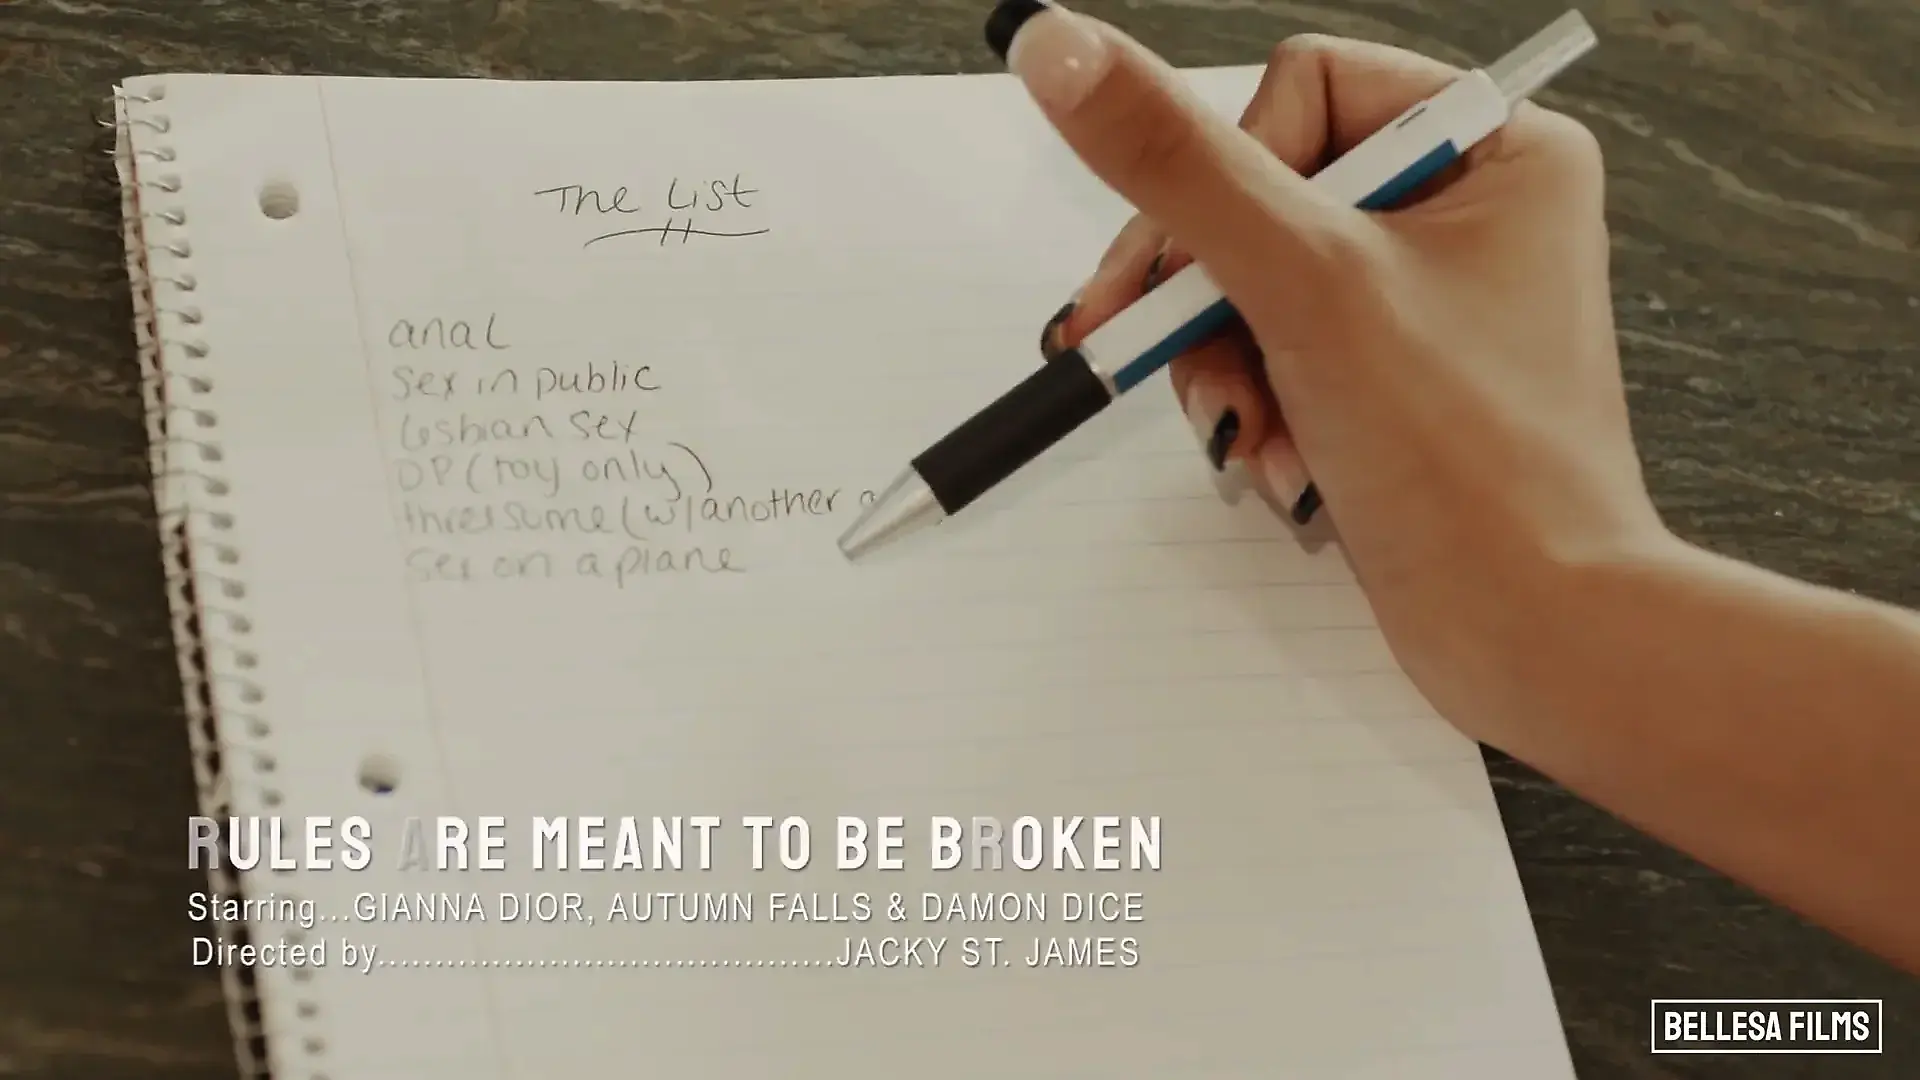 The List
anal
sex in public
lesbian sex
DP (toy only)
threesome (w/another
sex on a plane
RULES ARE MEANT TO BE BROKEN
Starring...GIANNA DIOR, AUTUMN FALLS & DAMON DICE
Directed by.......................................JACKY ST. JAMES
BELLESA FILMS